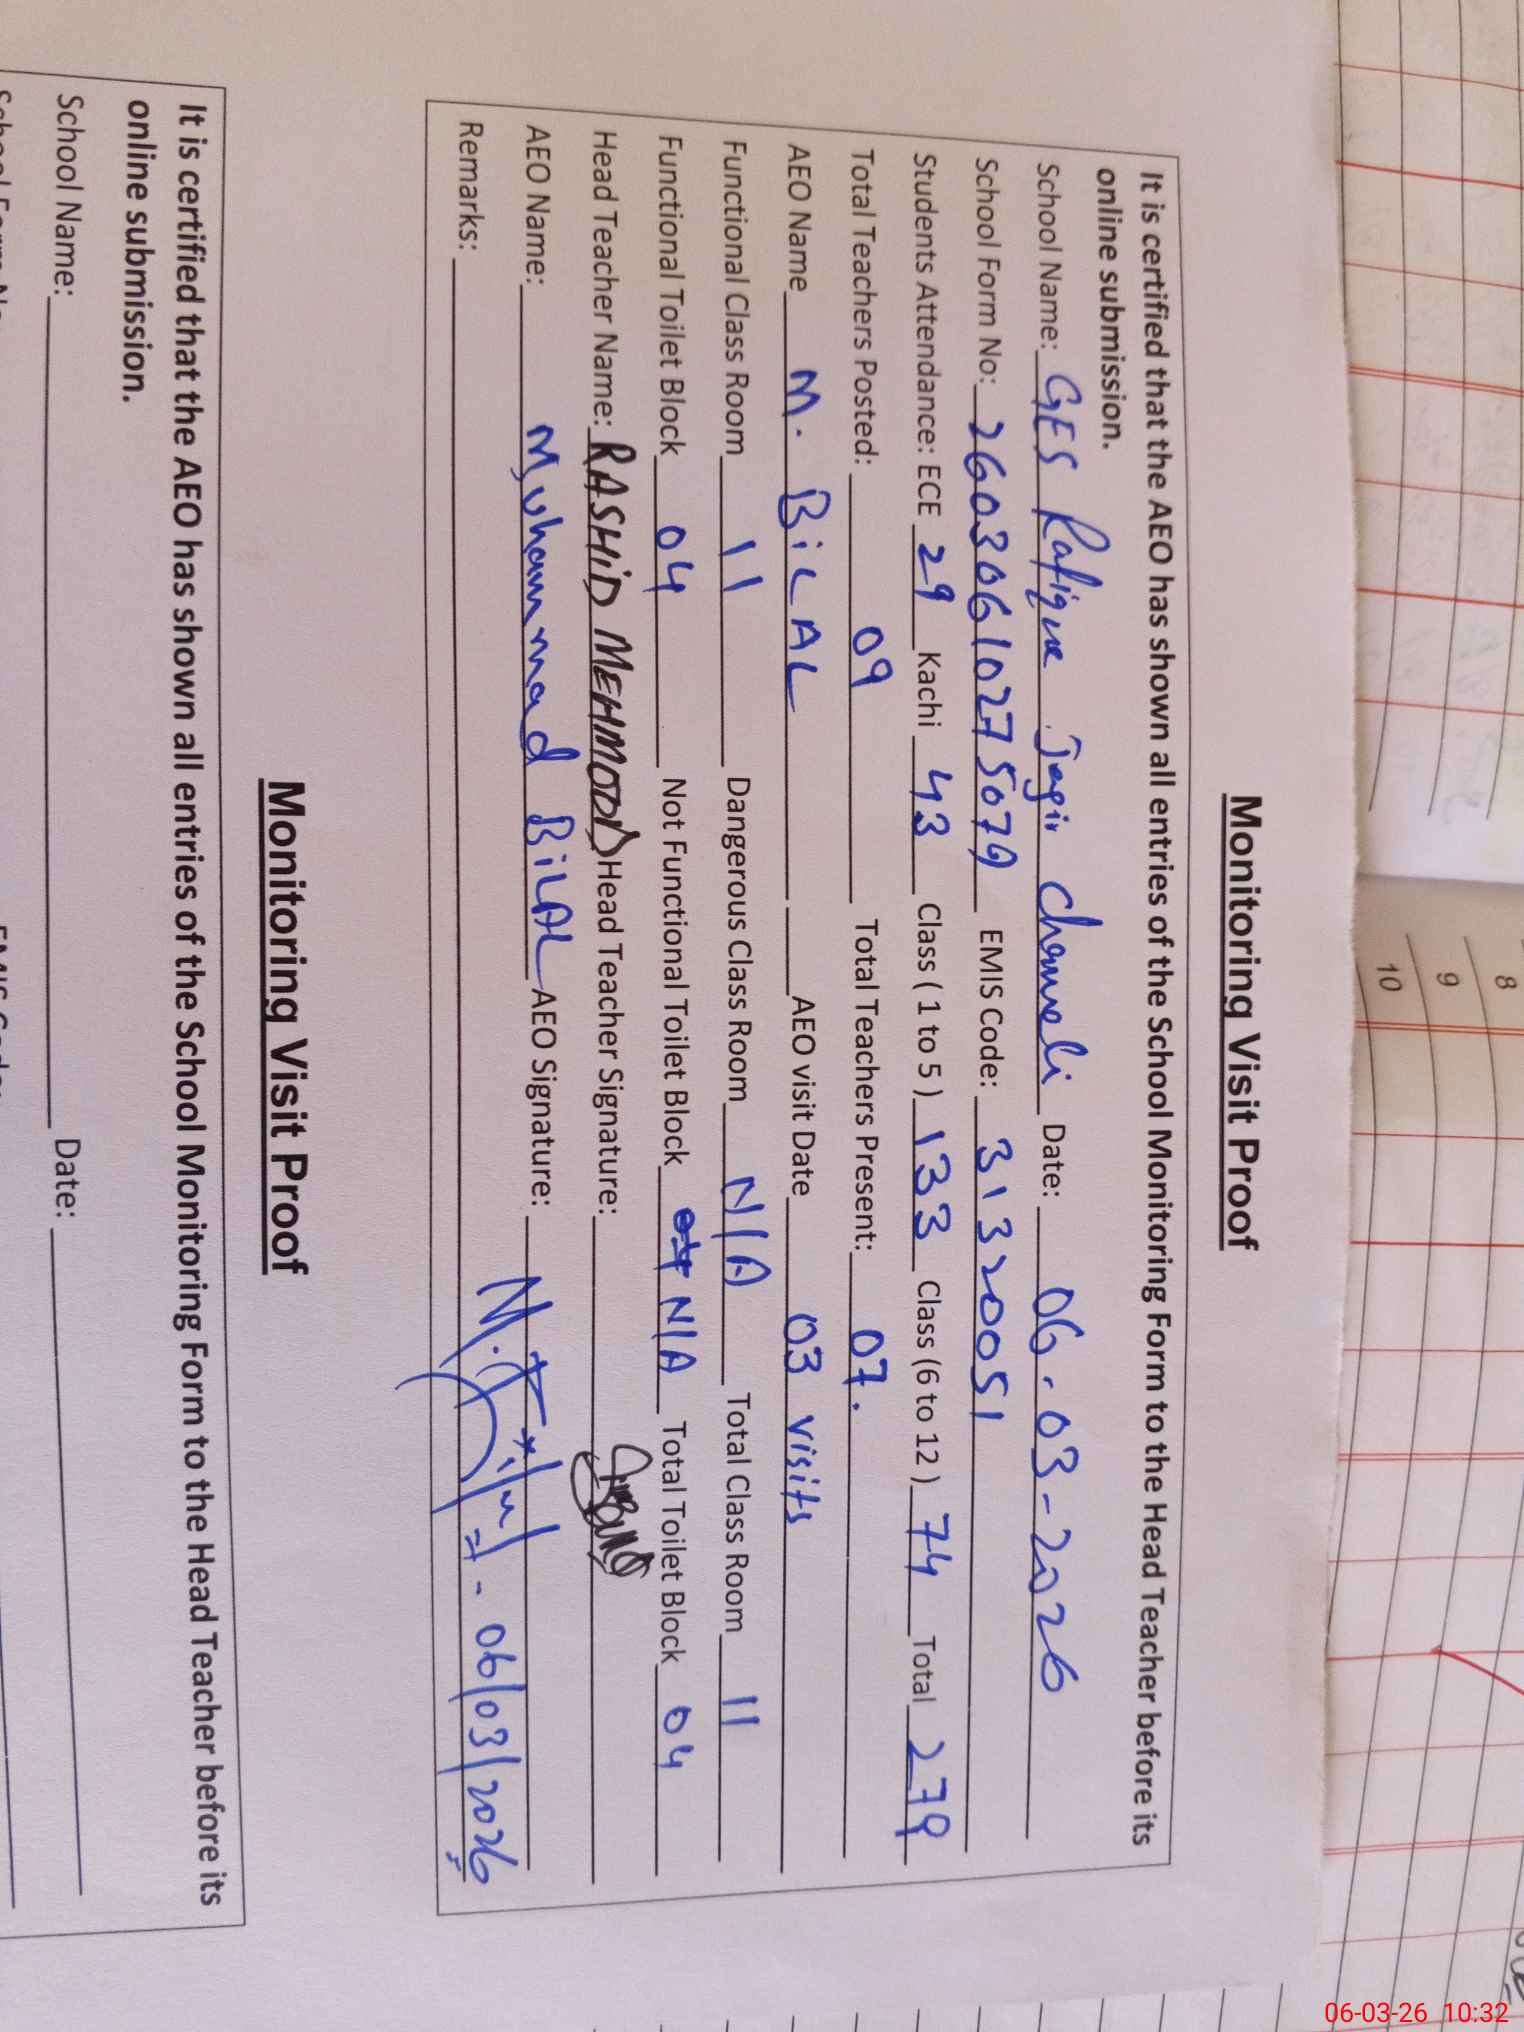 Monitoring Visit Proof
It is certified that the AEO has shown all entries of the School Monitoring Form to the Head Teacher before its
online submission.
School Name: GES Rafique Jagir Chamueli Date: 06-03-2026
School Form No: 2603061027 5079 EMIS Code: 31320051
Students Attendance: ECE 29 Kachi 43 Class ( 1 to 5 ) 133 Class (6 to 12 ) 74 Total 279
Total Teachers Posted: 09 Total Teachers Present: 07.
AEO Name M. BiLAL AEO visit Date 03 visits
Functional Class Room 11 Dangerous Class Room N/A Total Class Room 11
Functional Toilet Block 04 Not Functional Toilet Block N/A Total Toilet Block 04
Head Teacher Name: RASHiD MEHMOOD Head Teacher Signature:
AEO Name: Muhammad BiLAL AEO Signature:
Remarks: 06/03/2026
Monitoring Visit Proof
It is certified that the AEO has shown all entries of the School Monitoring Form to the Head Teacher before its
online submission.
School Name: Date:
8
9
10
06-03-26 10:32